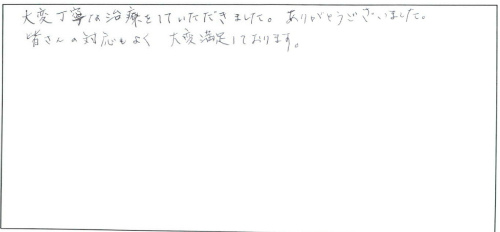 大変丁寧な治療をしていただきました。ありがとうございました。
皆さんの対応もよく 大変満足しております。